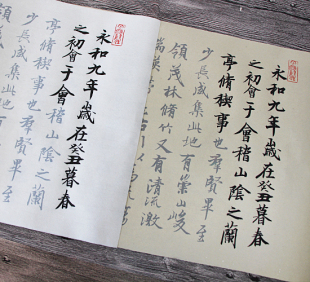 永和九年歲在癸丑暮春
之初會于會稽山陰之蘭
亭脩稧事也羣賢畢至
少長咸集此地有崇山峻
領茂林脩竹又有清流激
湍暎
永和九年歲在癸丑暮春
之初會于會稽山陰之蘭
亭脩稧事也羣賢畢至
少長咸集此地
領